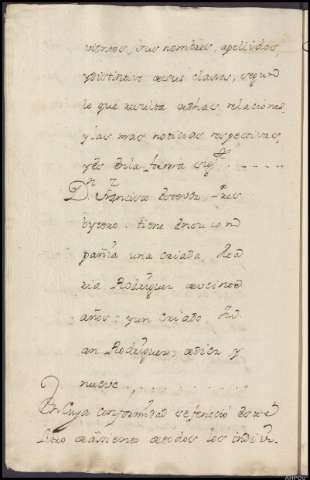 vientes, sus nombres, apellidos
y distintivos de sus clases, segun
lo que resulta de dhas. relaciones
y las mas noticias respectivas,
y es en la forma sigte.
Dn. Francisco Pres
bytero: tiene en su com
pañia una criada Ma
ria Rodriguez de cinco
años: y un criado Ju
an Rodriguez, de diez y
nueve
En cuya conformidad se fenecio este
libro de todos los indivi